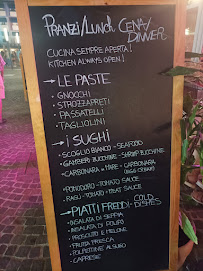 PRANZI/LUNCH CENA/
DINNER
CUCINA SEMPRE APERTA!
KITCHEN ALWAYS OPEN!
→ LE PASTE
- GNOCCHI
- STROZZAPRETI
- PASSATELLI
- TAGLIOLINI
→ I SUGHI
- SCOGLIO BIANCO - SEAFOOD
- GAMBERI ZUCCHINE - SHRIMP ZUCCHINE
- CARBONARA di MARE - CARBONARA
(EGGS CREAM)
- POMODORO - TOMATO SAUCE
- RAGU - TOMATO + MEAT SAUCE
→ PIATTI FREDDI COLD
DISHES
- INSALATA DI SEPPIA
- INSALATA DI POLIPO
- PROSCIUTTO E MELONE
- FRUTTA FRESCA
- POLPETTONE AL SUGO
- CAPRESE